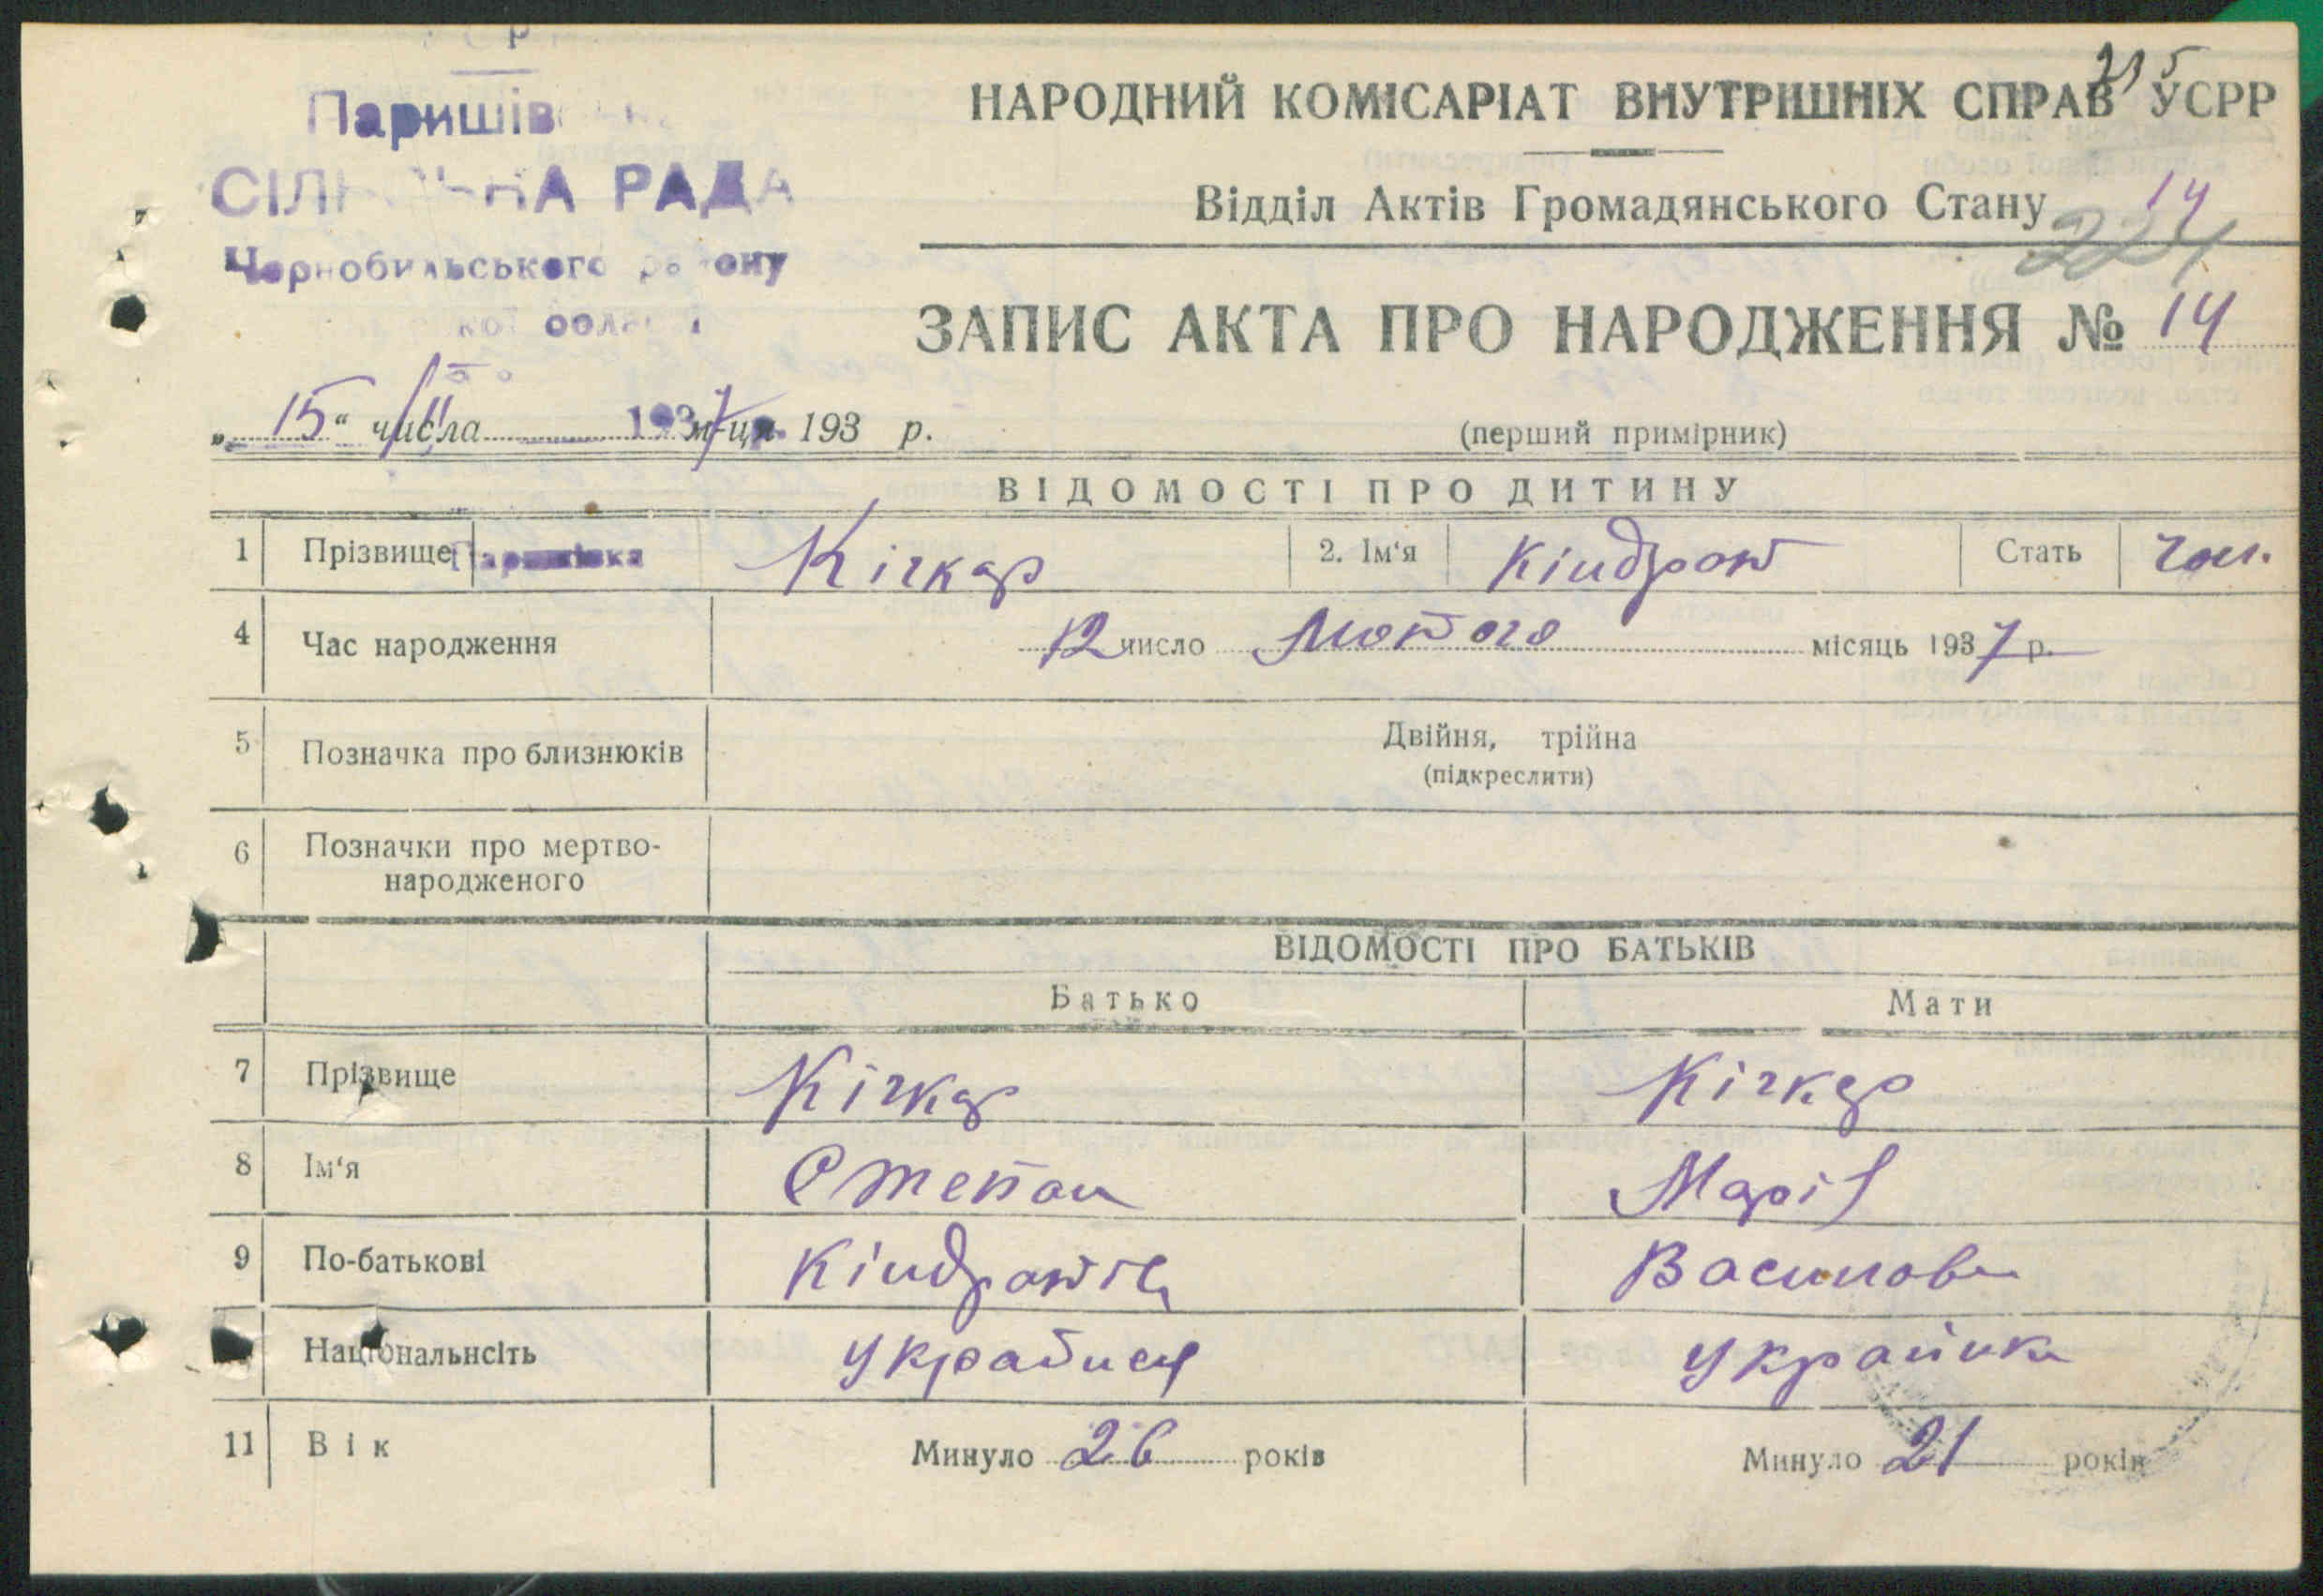 Паришів
СІЛЬСЬКА РАДА
Чорнобильського району
кої області
215
НАРОДНИЙ КОМІСАРІАТ ВНУТРІШНІХ СПРАВ УСРР
Відділ Актів Громадянського Стану
14
221
ЗАПИС АКТА ПРО НАРОДЖЕННЯ № 14
„15“ числа /II 1937 м-ця 193 р.
(перший примірник)
ВІДОМОСТІ ПРО ДИТИНУ
1 Прізвище Кічкар 2. Ім‘я Кіндрат Стать чол.
4 Час народження 12 число Лютого місяць 1937 р.
5 Позначка про близнюків Двійня, трійна
(підкреслити)
6 Позначки про мертво-
народженого
ВІДОМОСТІ ПРО БАТЬКІВ
Батько Мати
7 Прізвище Кічкар Кічкар
8 Ім‘я Степан Марія
9 По-батькові Кіндратів Василова
Національнсіть Українец Українка
11 Вік Минуло 26 років Минуло 21 років